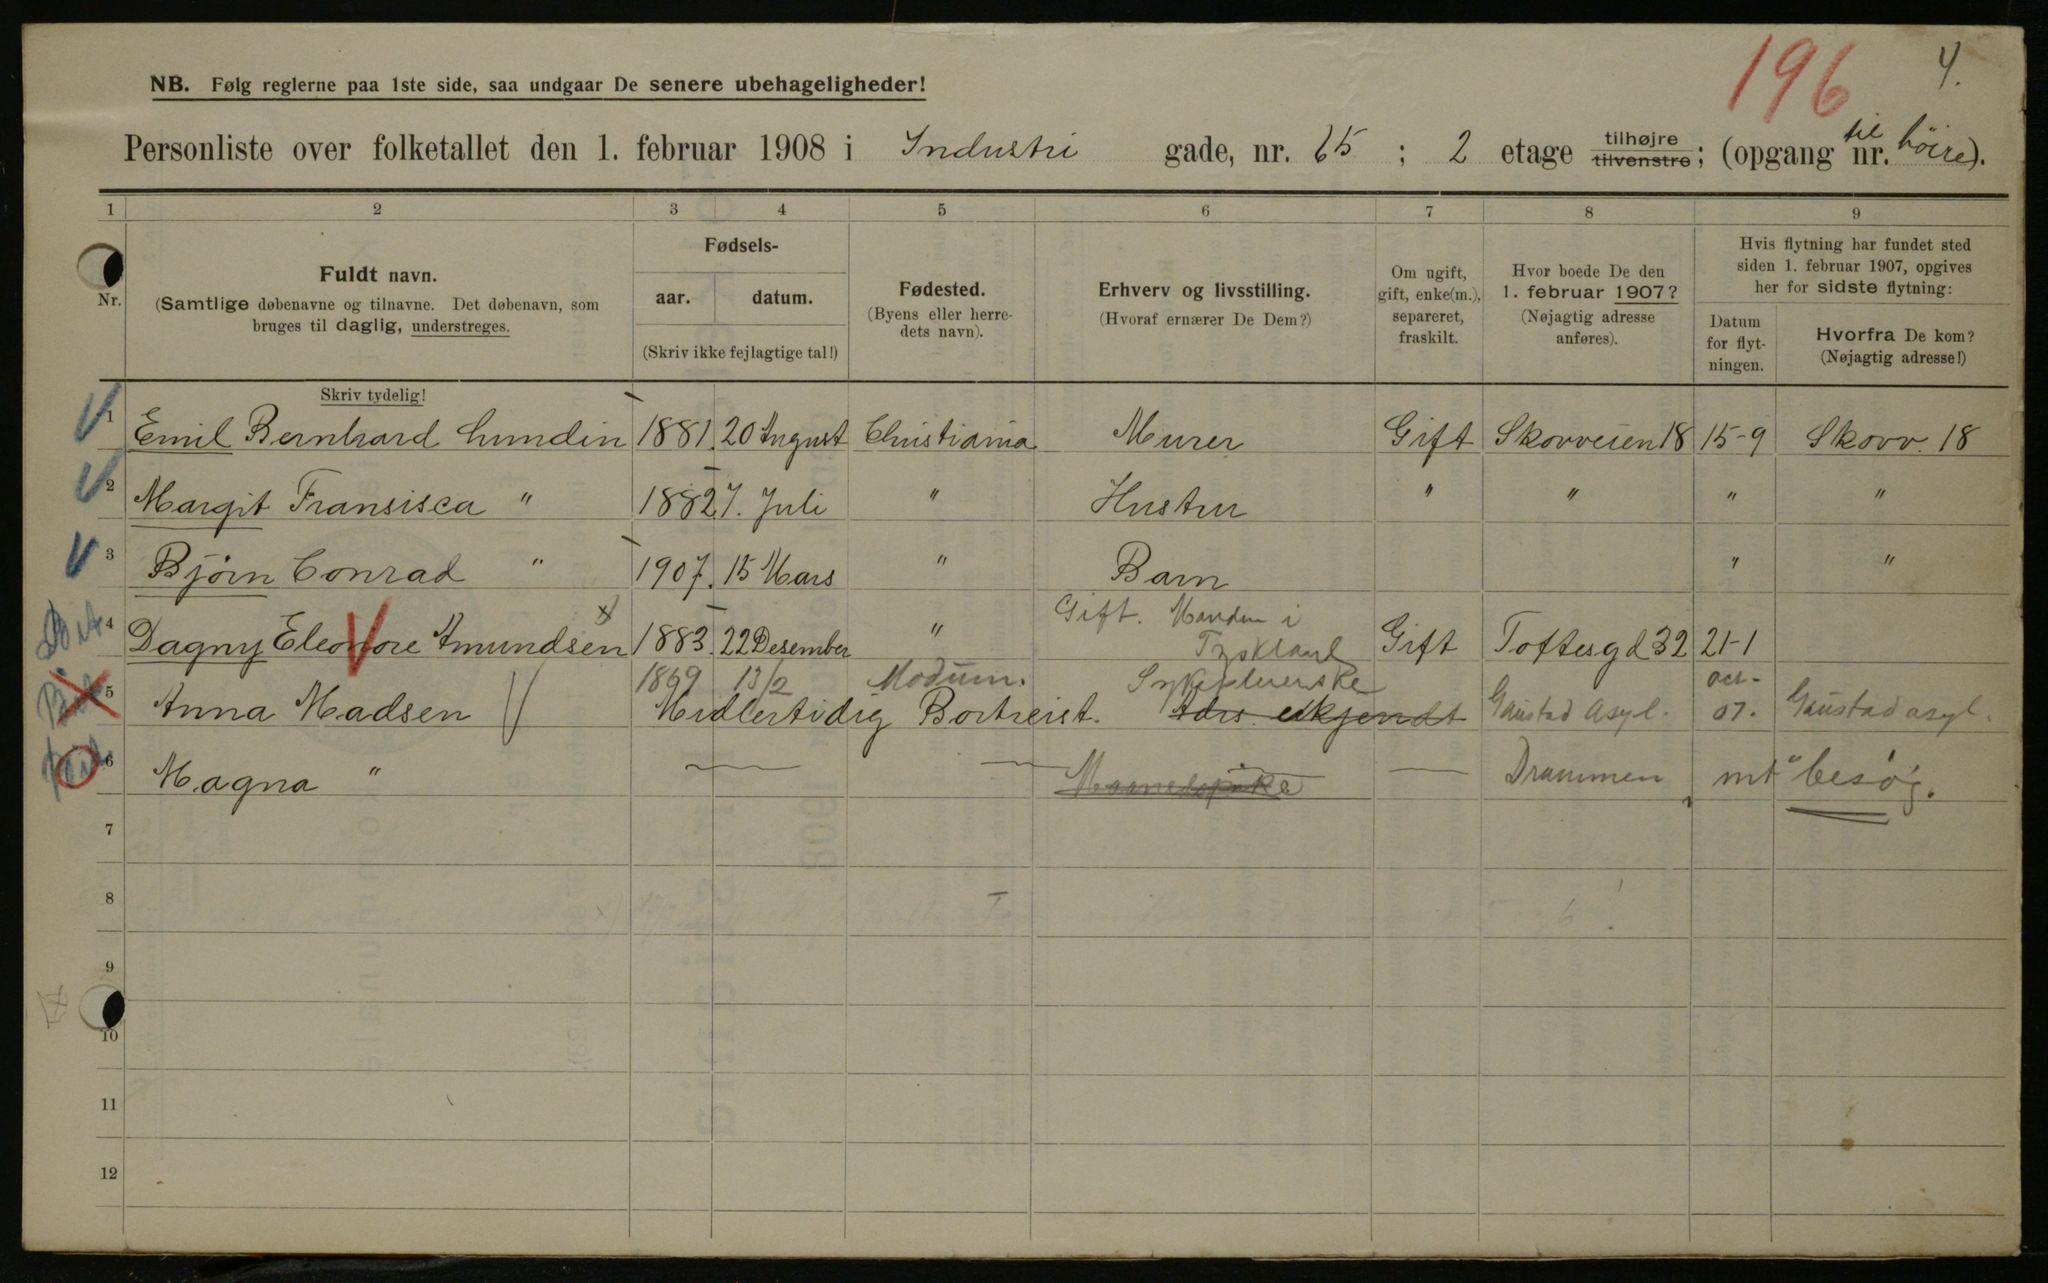 196
4.
NB. Følg reglerne paa 1ste side, saa undgaar De senere ubehageligheder!
Personliste over folketallet den 1. februar 1908 i Industri gade, nr. 65; 2 etage tilhøjre tilvenstre; (opgang nr. til höire).
1 2 3 4 5 6 7 8 9
Nr.
Fuldt navn.
(Samtlige døbenavne og tilnavne. Det døbenavn, som
bruges til daglig, understreges.
Fødsels-
aar. datum.
(Skriv ikke fejlagtige tal!)
Fødested.
(Byens eller herre-
dets navn).
Erhverv og livsstilling.
(Hvoraf ernærer De Dem?)
Om ugift,
gift, enke(m.),
separeret,
fraskilt.
Hvor boede De den
1. februar 1907?
(Nøjagtig adresse
anføres).
Hvis flytning har fundet sted
siden 1. februar 1907, opgives
her for sidste flytning:
Datum
for flyt-
ningen.
Hvorfra De kom?
(Nøjagtig adresse!)
Skriv tydelig!
1 Emil Bernhard Lundin 1881. 20 August Christiania Murer Gift Skovveien 18 15-9 Skovv. 18
2 Margit Fransisca " 1882 7. Juli " Hustru " " " "
3 Bjørn Conrad " 1907. 15 Mars " Barn " "
Gift. Manden i
4 Dagny Eleonore Amundsen 1883. 22 Desember " Tyskland Gift Toftesgd 32 21-1
1869 13/2 Modum. Sykepleierske
5 Anna Madsen Midlertidig Bortreist. Adrs. ukjendt Gaustad Asyl. oct- 07. Gaustad asyl.
6 Magna " Drammen mt besøg.
7
8
9
10
11
12